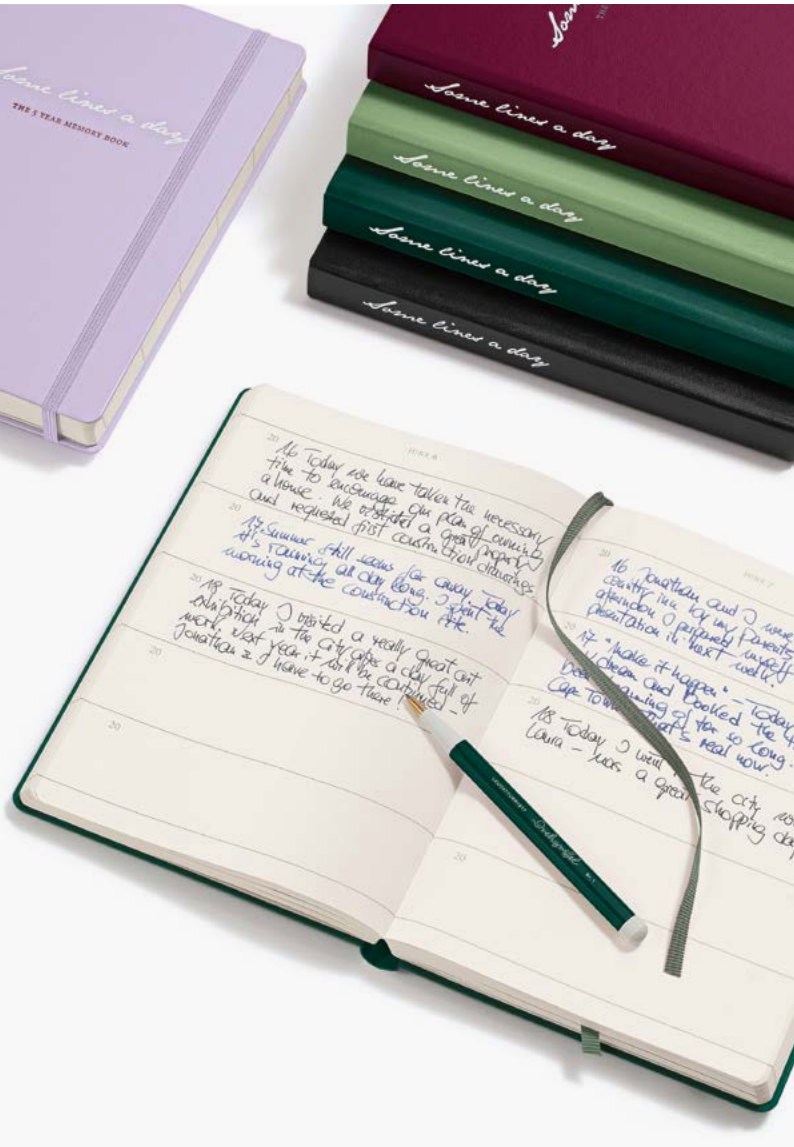 Some lines a day
THE 5 YEAR MEMORY BOOK
Som
THE
Some lines a day
Some lines a day
Some lines a day
Some lines a day
JUNE 6
20
16 Today we have taken the necessary
time to encourage our plan of owning
a house. We visited a great property
and requested first construction drawings.
20
17 Summer still seems far away. Today
it's raining all day long. I spent the
morning at the construction site.
20
18 Today I visited a really great art
exhibition in the city after a day full of
work. Next year it will be continued –
Jonathan & I have to go there!
20
20
JUNE 7
20
16 Jonathan and I were
country inn by my parents
afternoon I prepared myself
presentation in next week.
20
17 "make it happen" – Today
dream and booked the
been dreaming of for so long.
Cape Town that's real now.
20
18 Today I went the city
Laura – was a great shopping day
20
LEUCHTTURM1917
Drehgriffel
Nr. 1